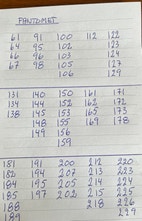 PANTOMET
61 91 100 112 122
64 95 102 123
66 96 103 124
67 98 105 127
106 129
131 140 150 161 171
134 144 152 162 172
138 145 153 165 173
148 155 169 178
149 156
159
181 191 200 212 220
182 194 207 213 223
184 195 205 214 224
185 197 202 215 225
188 218 226
189 229